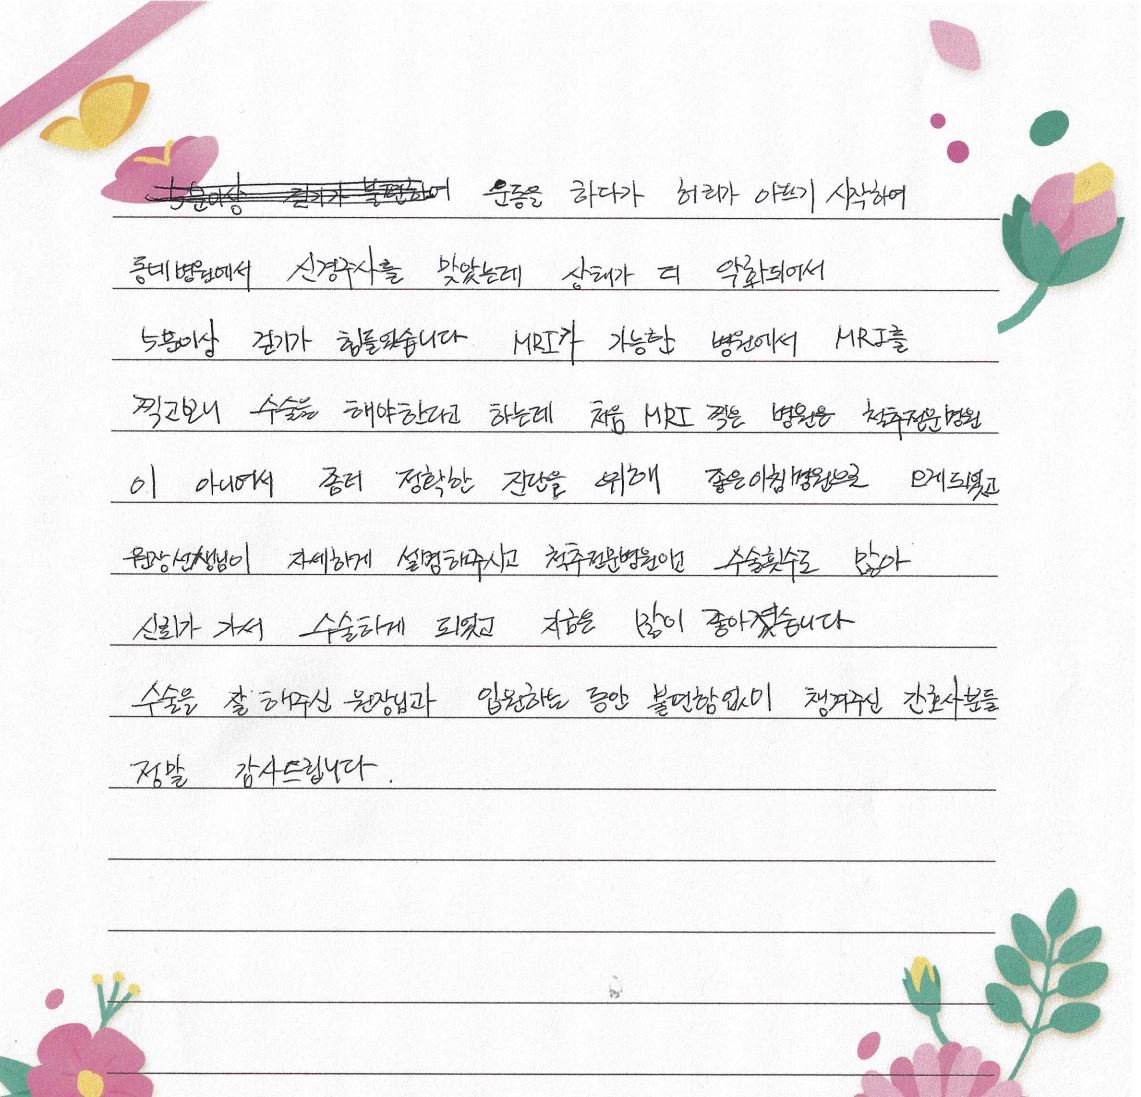 5분이상 걷기가 불편하여 운동을 하다가 허리가 아프기 시작하여
동네병원에서 신경주사를 맞았는데 상태가 더 악화되어서
5분이상 걷기가 힘들었습니다. MRI가 가능한 병원에서 MRI를
찍고보니 수술을 해야한다고 하는데 처음 MRI 찍은 병원은 척추전문병원
이 아니어서 좀더 정확한 진단을 위해 좋은아침병원으로 오게되었고
원장선생님이 자세하게 설명해주시고 척추전문병원이고 수술횟수도 많아
신뢰가 가서 수술하게 되었고 지금은 많이 좋아졌습니다
수술을 잘 해주신 원장님과 입원하는 동안 불편함없이 챙겨주신 간호사분들
정말 감사드립니다.